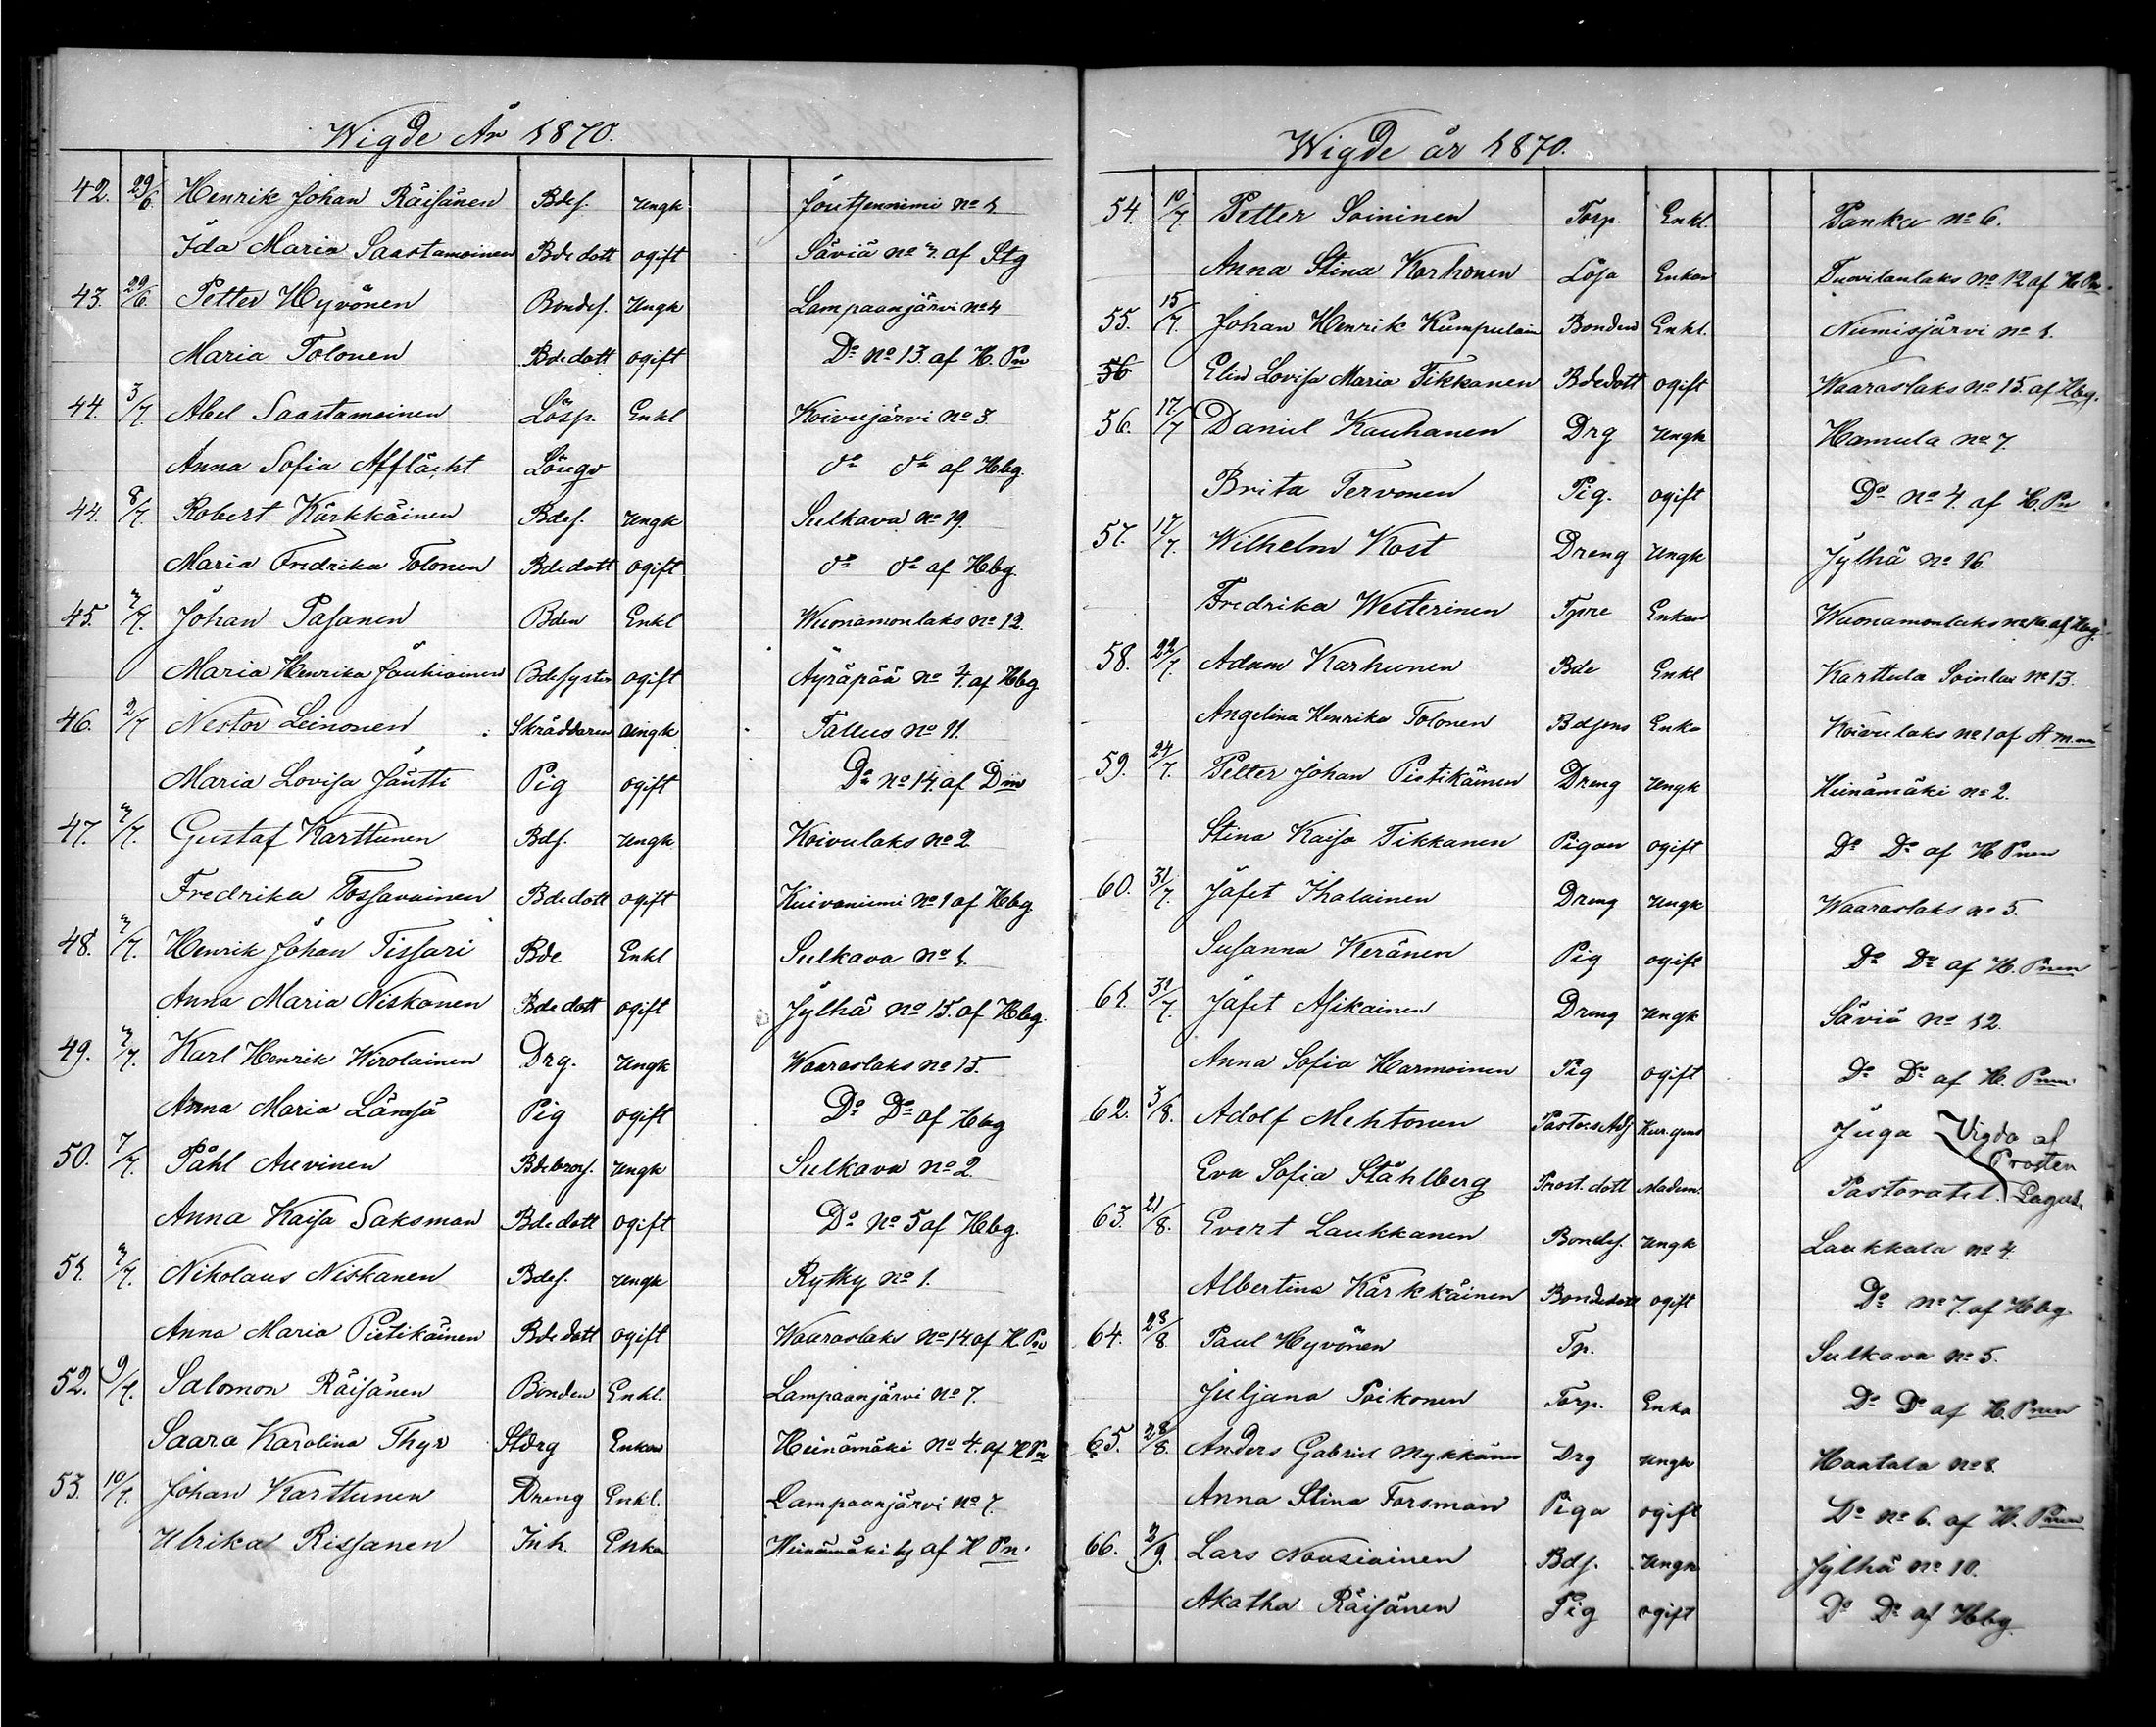 Wigde År 1870.
42. 29/6. Henrik Johan Räisänen Bdes. ungk
Ida Maria Saastamoinen Bdedott ogift Säviä no 7. af Stg
43. 29/6. Petter Hyvönen Bondes. Ungk Lampaanjärvi no 4
Maria Tolonen Bdedott ogift Do no 13. af H. Pn
44. 3/7. Abel Saastamoinen Lösp. Enkl Koivujärvi no 3
Anna Sofia Afflächt do do af Hbg.
44. 8/7. Robert Kärkkäinen Bdes. ungk Sulkava no 19.
Maria Fredrika Tolonen Bdedott ogift do do af Hbg.
45. 7/7. Johan Pasanen Bden Enkl Wuonamonlaks no 12.
Maria Henrika Jauhiainen Bdesyster ogift Äyräpää no 4. af Hbg
46. 2/7 Nestor Leinonen Skräddaren Tallus no 11.
Maria Lovisa Jäntti Pig ogift Do no 14. af Dm
47. 7/7. Gustaf Karttunen Bds. ungk Koivulaks no 2
Fredrika Tossavainen Bdedott ogift Kuivaniemi no 1 af Hbg.
48. 7/7. Henrik Johan Tissari Bde Enkl Sulkava no 1.
Anna Maria Niskanen Bdedott ogift Jylhä no 15. af Hbg.
49. 7/7. Karl Henrik Wirolainen Drg. ungk Waaraslaks no 15.
Anna Maria Länsjä Pig ogift Do Do af Hbg
50. 7/7. Påhl Auvinen Bdebrors. ungk Sulkava no 2.
Anna Kaisa Saksman Bdedott ogift Do no 5 af Hbg.
51. 7/7. Nikolaus Niskanen Bdes. ungk Rytky no 1.
Anna Maria Pietikäinen Bdedott ogift Waaraslaks no 14. af H. Pn
52. 9/7. Salomon Räisänen Bonden Enkl. Lampaanjärvi no 7.
Saara Karolina Thyr Stdrg Enkan Heinämäki no 4. af H Pn
53. 10/7. Johan Karttunen Dreng Enkl. Lampaanjärvi no 7.
Ulrika Rissanen Inh. Enkan Heinämäki by af H Pn.
Wigde år 1870.
54. 10/7. Petter Soininen Torp. Enkl. Panka no 6.
Anna Stina Korhonen Lösa Enkan Tuovilanlaks no 12 af H. Pn.
55. 15/7. Johan Henrik Kumpulain Bonden Enkl. Niemisjärvi no 1.
56 Elin Lovisa Maria Tikkanen Bdedott ogift Waaraslaks no 15. af Hbg.
56. 17/7 Daniel Kauhanen Drg ungk Hamula no 7.
Brita Tervonen Pig. ogift Do no 4. af H. Pn
57. 17/7. Wilhelm Kost Dreng ungk Jylhä no 16.
Fredrika Westerinen Enkan Wuonamonlaks no 10. af Hbg.
58. 22/7. Adam Karhunen Bde Enkl Karttula Soinlax no 13.
Angelina Henrika Tolonen Enka Koivulaks no 1 af
59. 24/7. Petter Johan Pietikäinen Dreng ungk Heinämäki no 2.
Stina Kaisa Tikkanen Pigan ogift Do Do af H Pnen
60. 31/7. Jafet Ihalainen Dreng ungk Waaraslaks no 5.
Susanna Keränen Pig ogift Do Do af H. Pnen
61. 31/7. Jafet Asikainen Dreng ungk Säviä no 12.
Anna Sofia Harmoinen Pig ogift Do Do af H. Pnen
62. 3/8. Adolf Mehtonen Pastors Adj Juga Vigda af
Prosten
Eva Sofia Ståhlberg Prost. dott Madem. Pastoratet. Lagus.
63. 21/8. Evert Laukkanen Bondes. ungk Laukkala no 4.
Albertina Kärkkäinen Bondedott ogift Do no 7. af Hbg.
64. 28/8. Paul Hyvönen Tp. Sulkava no 5.
Juljana Poikonen Torp. Enka Do Do af H. Pnen
65. 28/8. Anders Gabriel Mykkänen Drg ungk Hautala no 8.
Anna Stina Forsman Piga ogift Do no 6. af H. Pnen
66. 2/9. Lars Nousiainen Bds. ungk Jylhä no 10.
Akatha Räisänen Pig ogift Do Do af Hbg